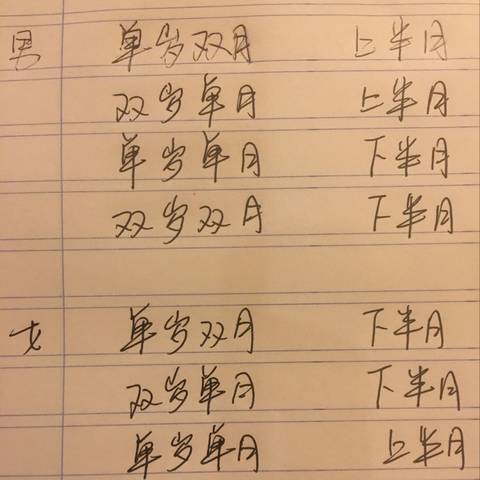 男 单岁双月 上半月
双岁单月 上半月
单岁单月 下半月
双岁双月 下半月
女 单岁双月 下半月
双岁单月 下半月
单岁单月 上半月